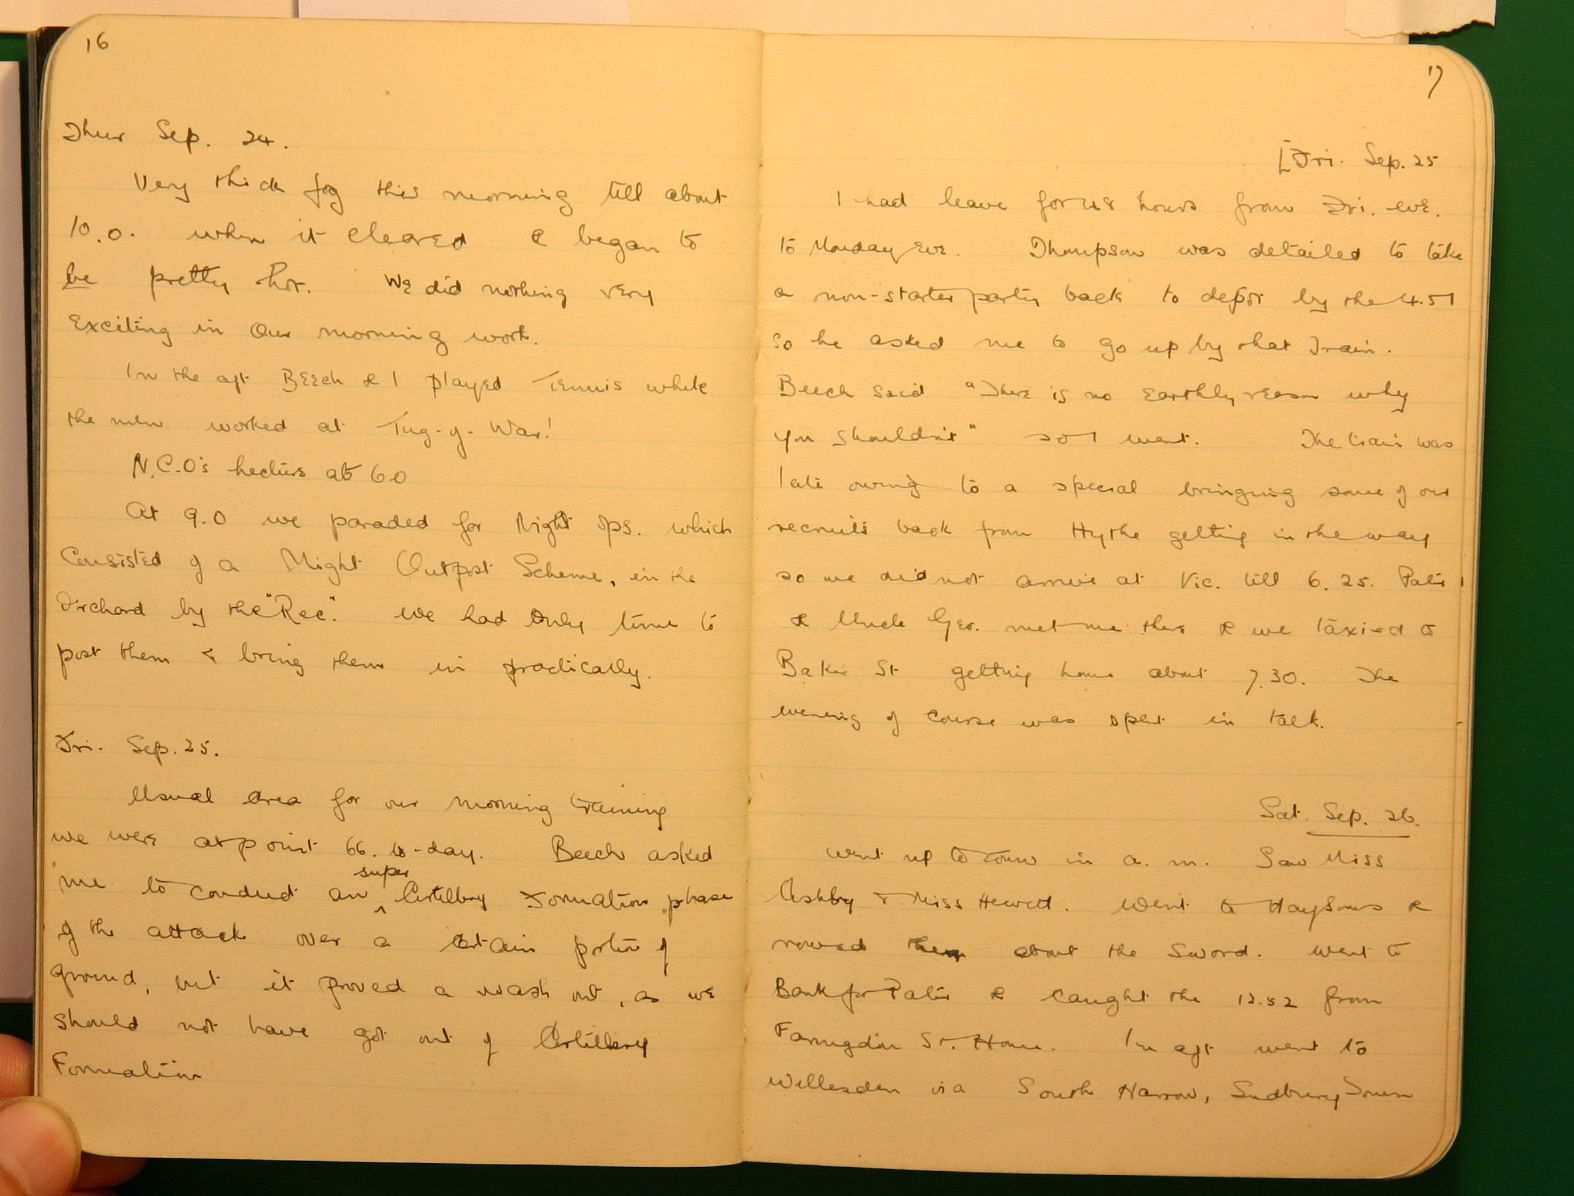 16
Thur Sep. 24.
Very thick fog this morning till about
10.0. when it cleared & began to
be pretty hot. We did nothing very
exciting in our morning work.
In the aft Beech & I played Tennis while
the men worked at Tug-of-War!
N.C.O's lectures at 6.0
At 9.0 we paraded for Night Ops. which
consisted of a Night Outpost Scheme, in the
Orchard by the "Rec". We had only time to
post them & bring them in practically.
Fri. Sep. 25.
Usual area for our morning training
we were at point 66. to-day. Beech asked
me to conduct an super Artillery Formation phase
of the attack over a certain portion of
ground, but it proved a wash out, as we
should not have got out of Artillery
Formation
17
[Fri. Sep. 25
I had leave for 48 hours from Fri. eve.
to Monday Eve. Thompson was detailed to take
a non-starter party back to depot by the 4.51
so he asked me to go up by that Train.
Beech said "There is no earthly reason why
you shouldn't" so I went. The train was
late owing to a special bringing some of our
recruits back from Hythe getting in the way
so we did not arrive at Vic. till 6.25. Pater
& Uncle Geo. met me there & we taxied to
Baker St getting home about 7.30. The
evening of course was spent in talk.
Sat. Sep. 26.
Went up to town in a.m. Saw Miss
Ashby & Miss Hewett. Went to &
about the Sword. Went to
Bank for Pater & caught the 12.52 from
Farringdon St. Home. In aft went to
Willesden via South Harrow, Sudbury Town